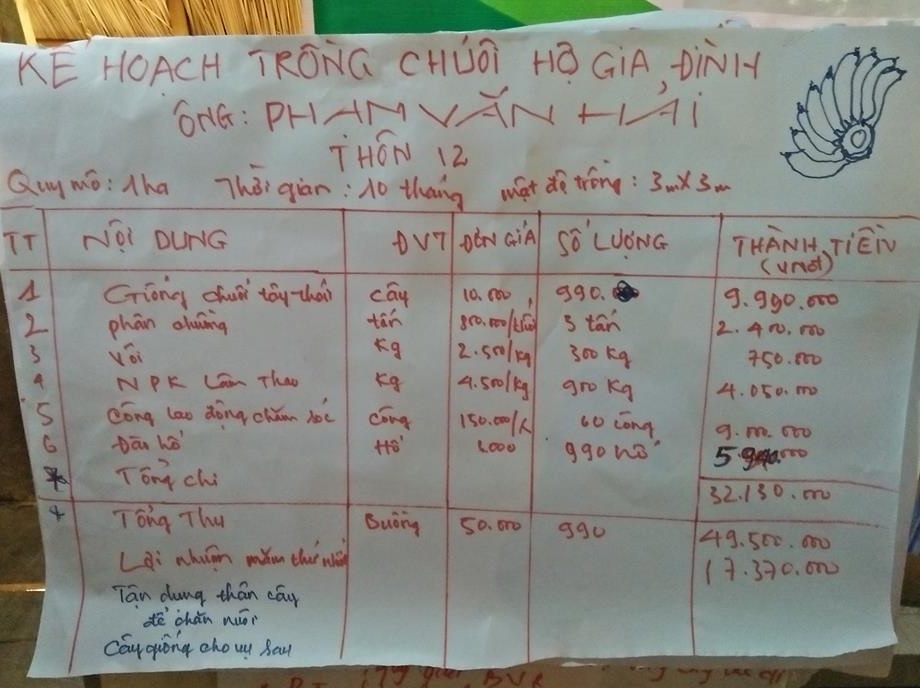 KẾ HOẠCH TRỒNG CHUỐI HỘ GIA ĐÌNH
ÔNG: PHAN VĂN HẢI
THÔN 12
Quy mô: 1ha Thời gian: 10 tháng mật độ trồng: 3m x 3m
TT NỘI DUNG ĐVT ĐƠN GIÁ SỐ LƯỢNG THÀNH TIỀN (VNĐ)
1 Giống chuối tây-thái cây 10.000 990. 9.990.000
2 phân chuồng tấn 800.000/khối 3 tấn 2.400.000
3 Vôi Kg 2.500/kg 300 kg 750.000
4 NPK Lâm Thao Kg 4.500/kg 900 kg 4.050.000
5 Công lao động chăm sóc công 150.000/ 60 công 9.000.000
6 Đào hố Hố 990 hố
Tổng chi 32.130.000
Tổng Thu Buồng 50.000 990 49.500.000
Lợi nhuận năm thứ nhất 17.370.000
Tận dụng thân cây
để chăn nuôi
Cây giống cho vụ sau